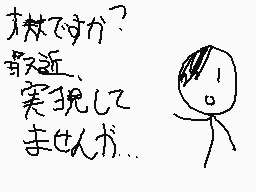 ですか?
最近、
実現して
ませんが...